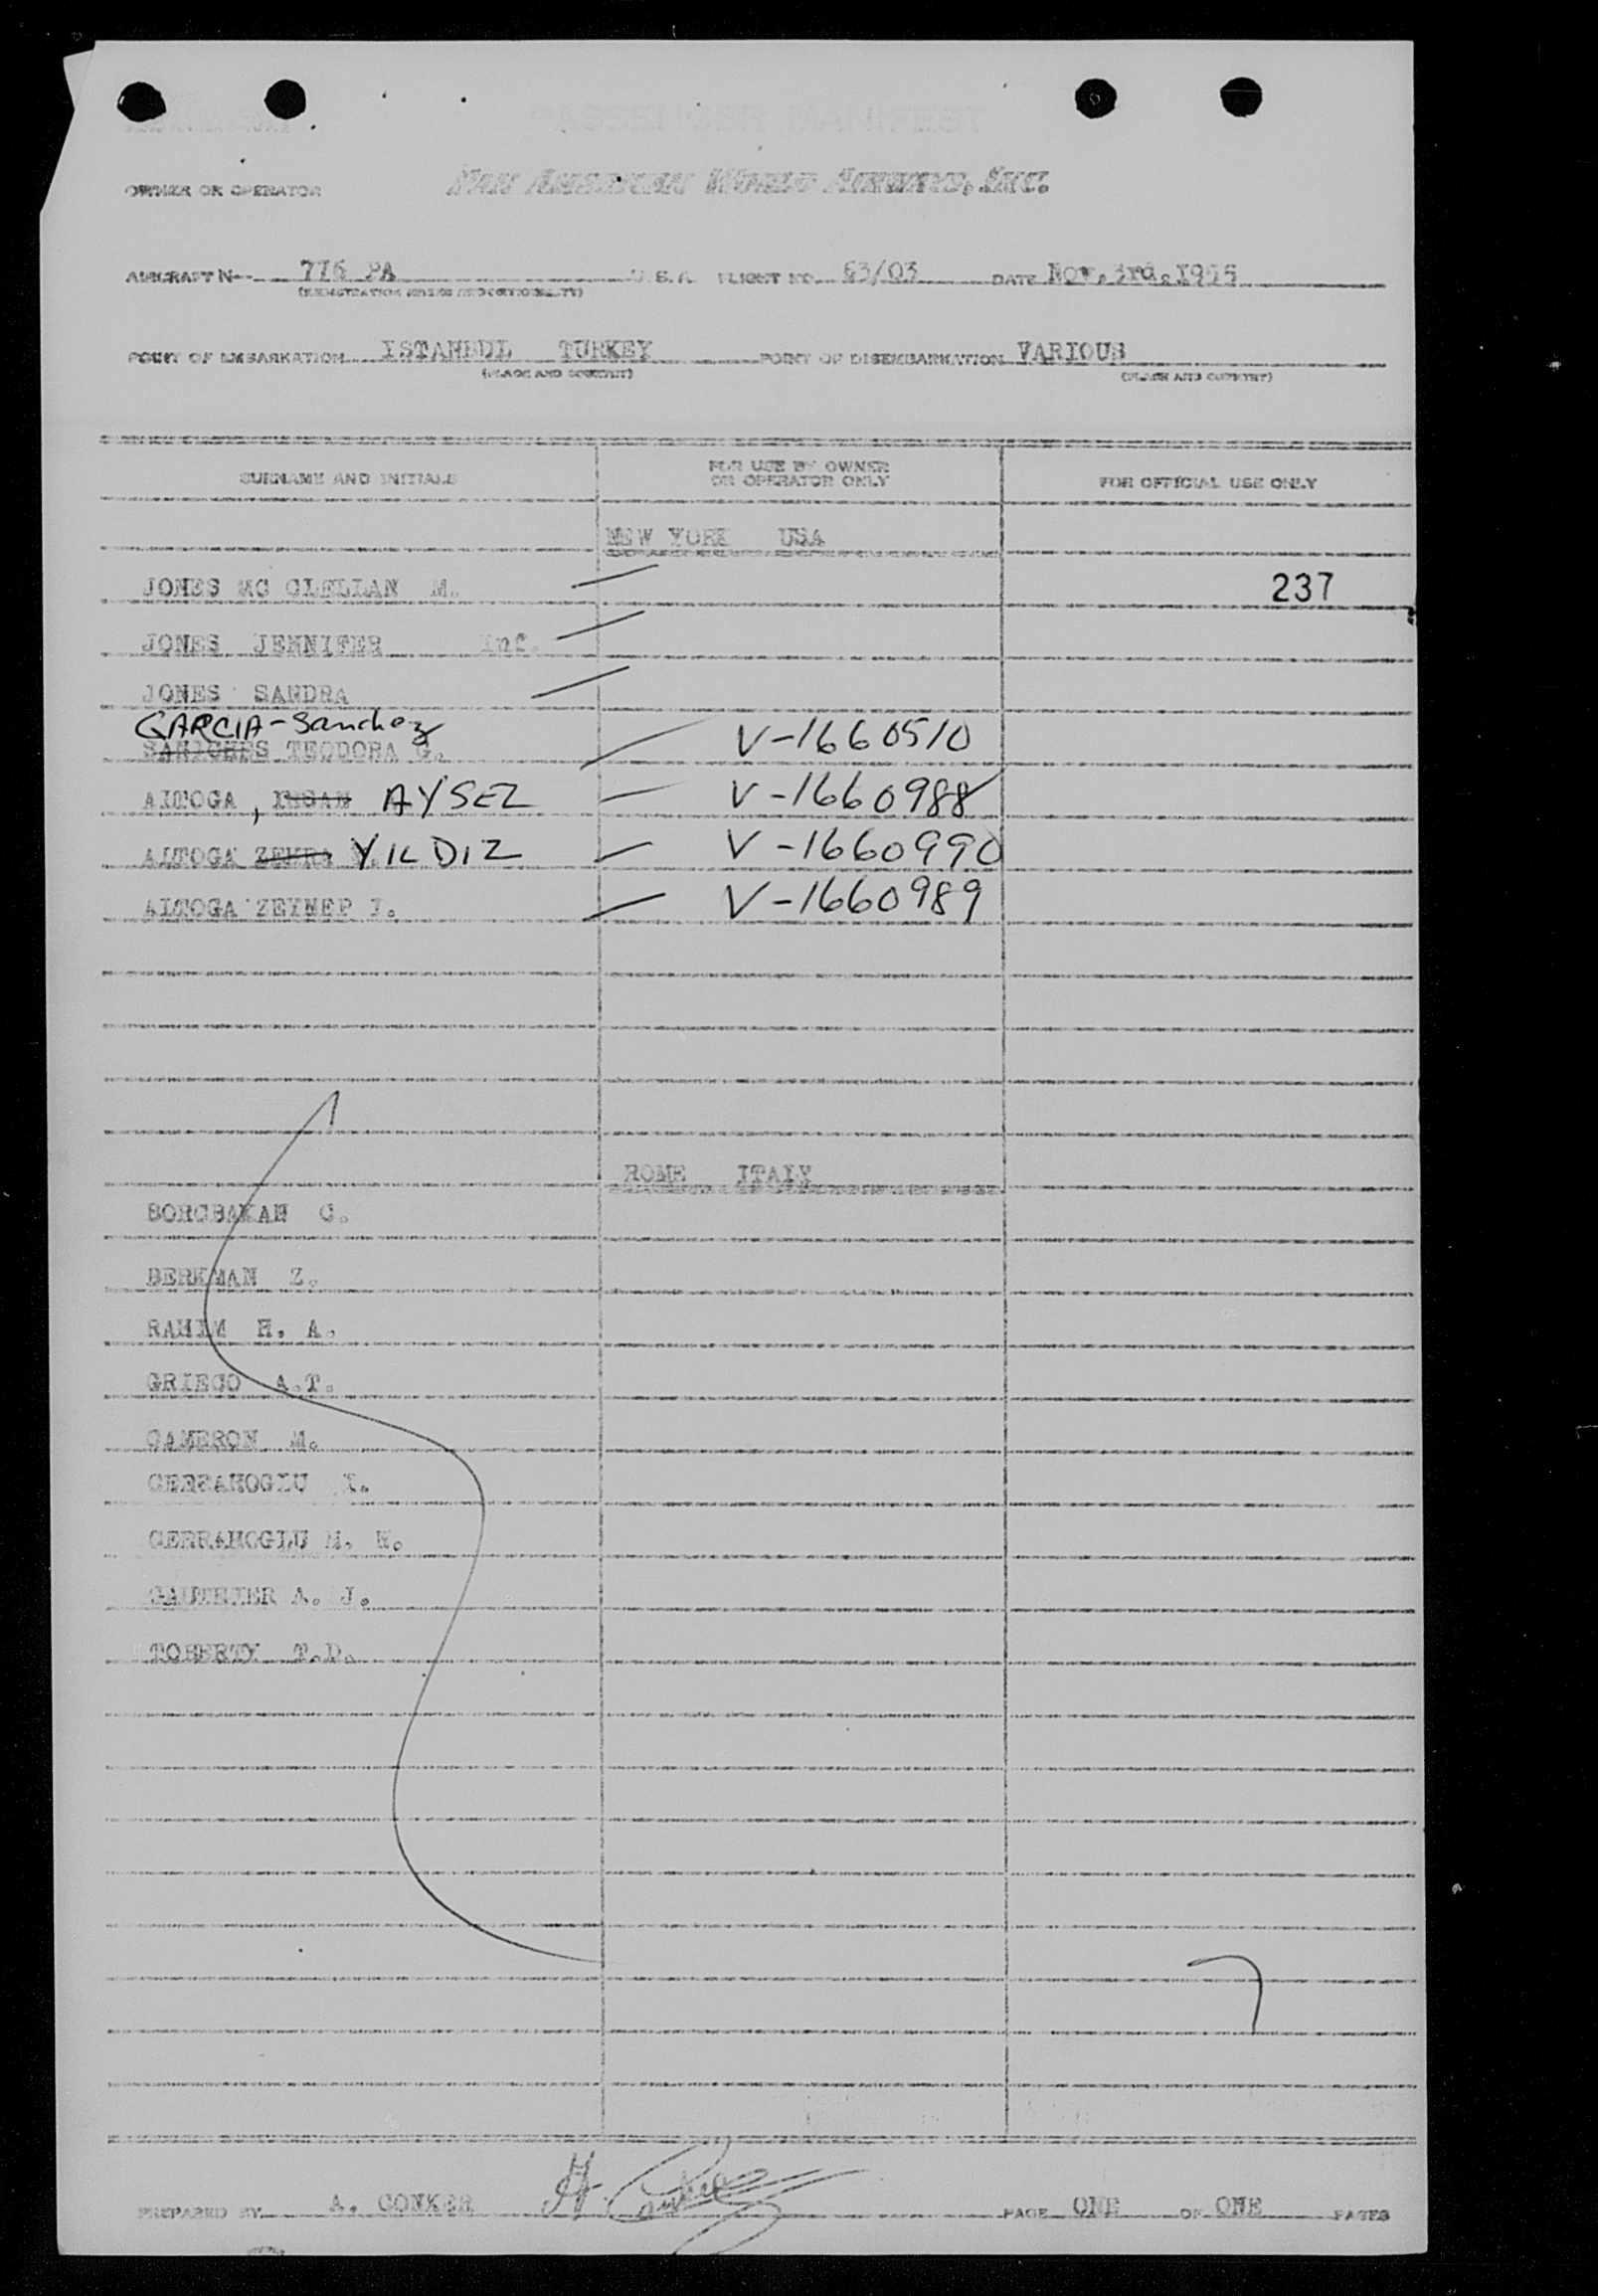 OWNER OR OPERATOR PAN AMERICAN WORLD AIRWAYS, INC.
AIRCRAFT N- 776 PA U.S.A. FLIGHT NO. 63/03 DATE Nov. 3rd. 1955
(REGISTRATION MARKS AND NATIONALITY)
POINT OF EMBARKATION ISTANBUL TURKEY POINT OF DISEMBARKATION VARIOUS
(PLACE AND COUNTRY) (PLACE AND COUNTRY)
SURNAME AND INITIALS FOR USE BY OWNER OR OPERATOR ONLY FOR OFFICIAL USE ONLY
NEW YORK USA
JONES MC CLELLAN M. 237
JONES JENNIFER Inf.
JONES SANDRA
GARCIA-Sanchez
TEODORA G. V-1660510
ALTOGA, IHSAN AYSEL V-1660988
ALTOGA ZEHRA YILDIZ V-1660990
ALTOGA ZEYNEP V-1660989
ROME ITALY
BORCBAKAN C.
BERKMAN Z.
RAHIM H. A.
GRIECO A.T.
CAMERON M.
CERRAHOGLU
CERRAHOGLU M.
GAUTHIER A. J.
T.D.
PREPARED BY A. CONKER PAGE ONE OF ONE PAGES